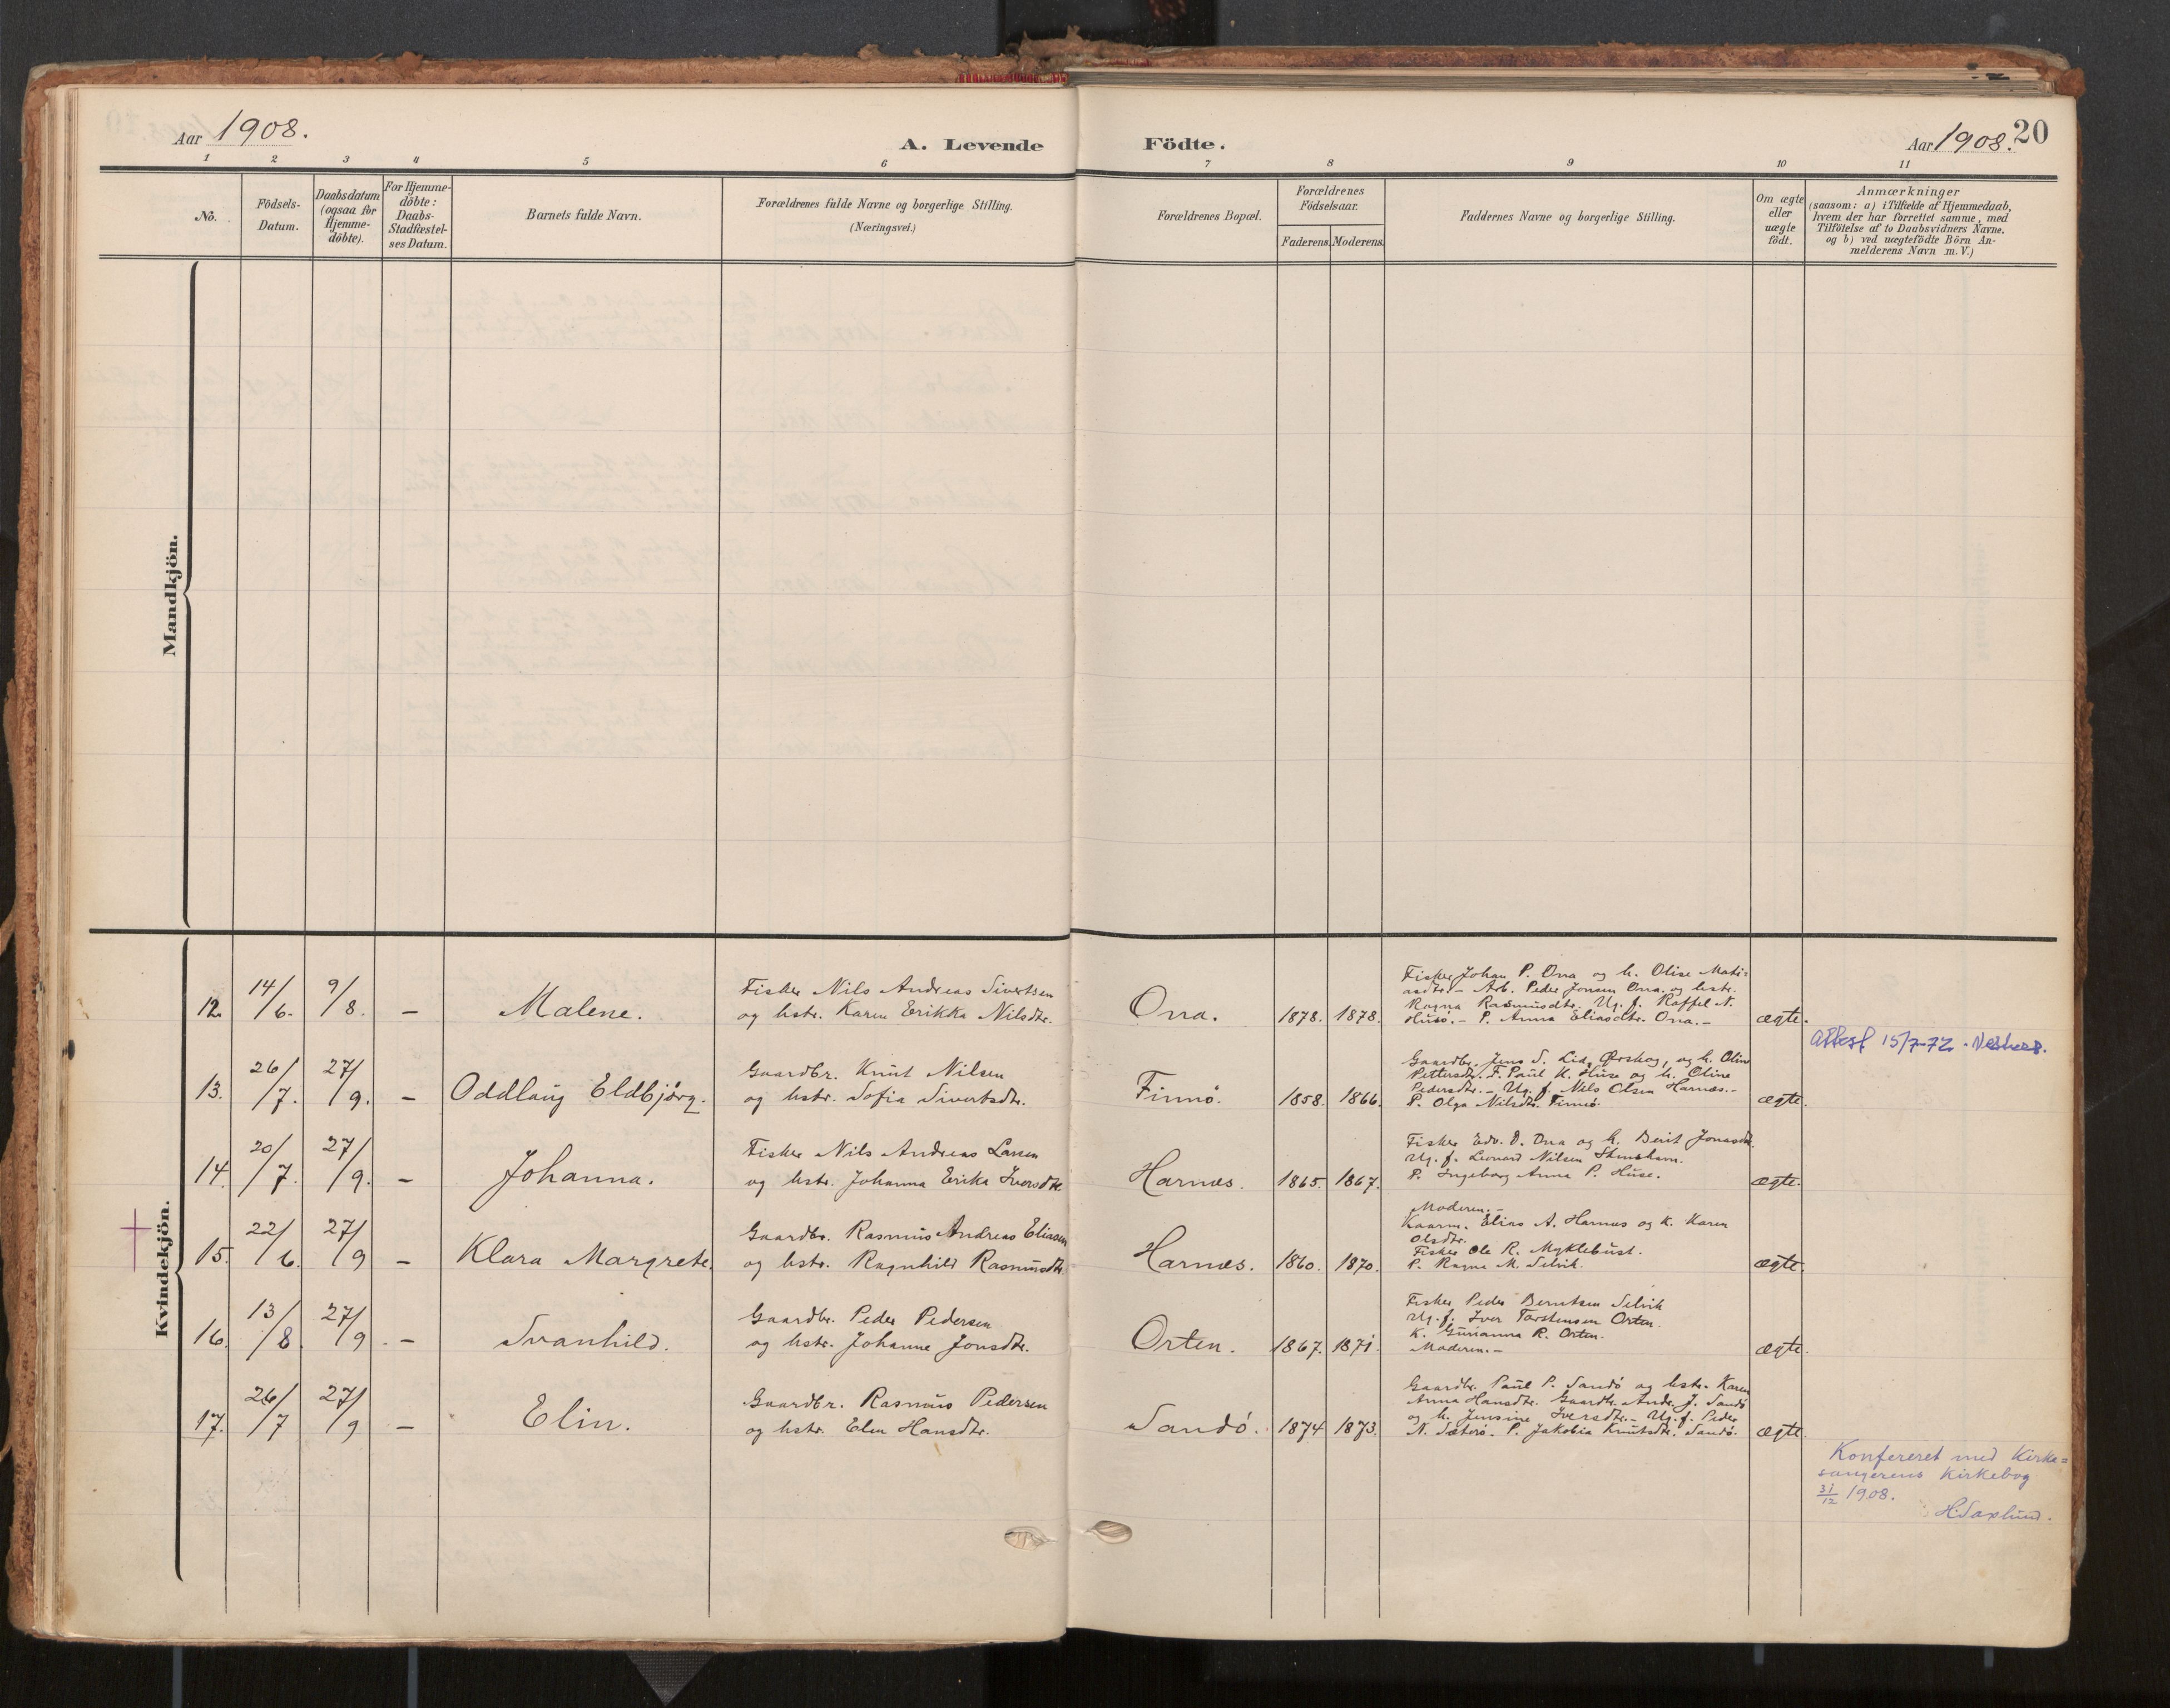 Aar 1908.
A. Levende Födte.
Aar 1908. 20
1 2 3 4 5 6 7 8 9 10 11
No.
Födsels-
Datum.
Daabsdatum
(ogsaa for
Hjemme-
döbte).
For Hjemme-
döbte:
Daabs-
Stadfæstel-
ses Datum.
Barnets fulde Navn.
Forældrenes fulde Navne og borgerlige Stilling.
(Næringsvei.)
Forældrenes Bopæl.
Forældrenes
Födselsaar.
Faderens. Moderens.
Faddernes Navne og borgerlige Stilling.
Om ægte
eller
uægte
födt.
Anmærkninger
(saasom: a) i Tilfælde af Hjemmedaab,
hvem der har forrettet samme, med
Tilföielse af to Daabsvidners Navne,
og b) ved uægtefödte Börn An-
melderens Navn m. V.)
Mandkjön.
Kvindekjön.
12. 14/6. 9/8. – Malene.
Fisker Nils Andreas Sivertsen
og hstr. Karen Erikka Nilsdtr.
Ona. 1878. 1878.
Fisker Johan P. Ona og h. Olise Mati=
asdtr. – Arb. Peder Jonsen Ona og hstr.
Ragna Rasmusdtr. Ug. f. Raffel N.
Husö. – P. Anna Eliasdtr. Ona. –
ægte.
Attest 15/7-72.
13. 26/7. 27/9. – Oddlaug Eldbjörg.
Gaardbr. Knut Nilsen
og hstr. Sofia Sivertsdtr.
Finnö. 1858. 1866.
Gaardbr. Jens S. Lid, Ørskog, og h. Oline
Pettersdtr. F. Paul K. Huse og h. Oline
Pedersdtr. – Ug. f. Nils Olsen Harnæs. –
P. Olga Nilsdtr. Finnö.
ægte.
14. 20/7. 27/9. – Johanna.
Fisker Nils Andreas Larsen
og hstr. Johanna Erika Iversdtr.
Harnæs. 1865. 1867.
Fisker Edv. D. Ona og h. Berit Jonsdtr.
Ug. f. Leonard Nilsen Stenshavn.
P. Ingeborg Anna P. Huse.
ægte.
15. 22/6. 27/9 – Klara Margrete.
Gaardbr. Rasmus Andreas Eliasen
og hstr. Ragnhild Rasmusdtr.
Harnæs. 1860. 1870.
Moderen. –
Kaarm. Elias A. Harnæs og K. Karen
Olsdtr.
Fisker Ole R. Myklebust.
P. Ragna M. Selvik.
ægte.
16. 13/8. 27/9 – Svanhild.
Gaardbr. Peder Pedersen
og hstr. Johanne Jonsdtr.
Orten. 1867. 1871.
Fisker Peder Berntsen Selvik
Ug. f. Iver Torstensen Orten.
K. Gurianna R. Orten.
Moderen. –
ægte.
17. 26/7 27/9 – Elin.
Gaardbr. Rasmus Pedersen
og hstr. Elen Hansdtr.
Sandö. 1874 1873.
Gaardbr. Paul P. Sandö og hstr. Karen
Anna Hansdtr. Gaardbr. Andr. J. Sandö
og h. Jensine Iversdtr. – Ug. f. Peder
N. Sæterö. P. Jakobia Knutsdtr. Sandö.
ægte.
Konfereret med Kirke=
sangerens Kirkebog
31/12 1908.
H. Saxlund.